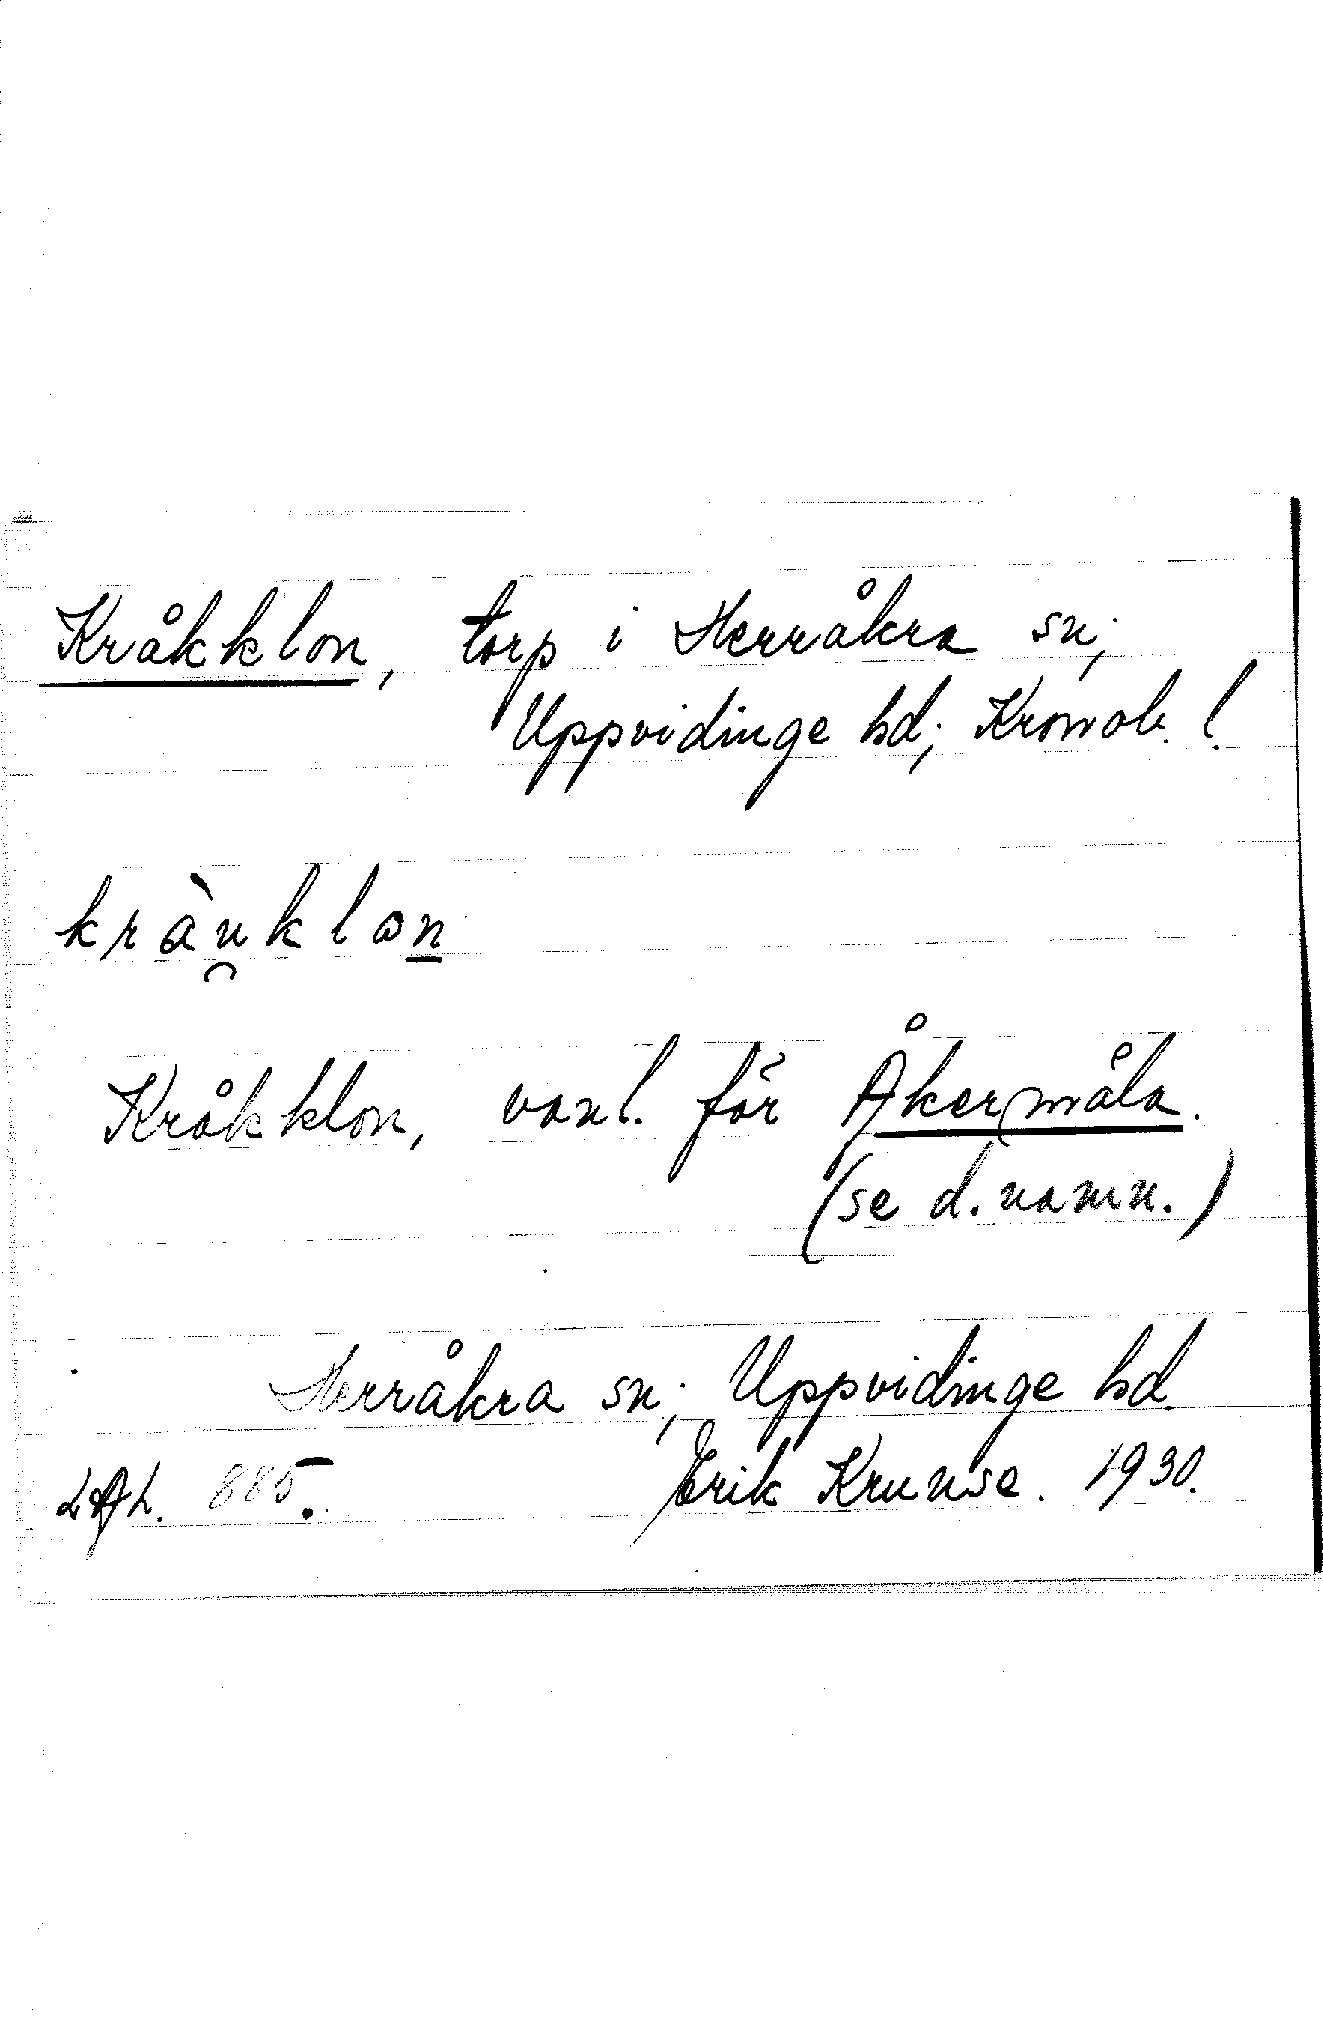 Kråkklon, torp i Herråkra sn;
Uppvidinge hd; Kronob. l.
kràu̯klon
Kråkklon, vanl. för Åkermåla.
(se d. namn.)
Herråkra sn; Uppvidinge hd.
Erik Krunse. 1930.
885.